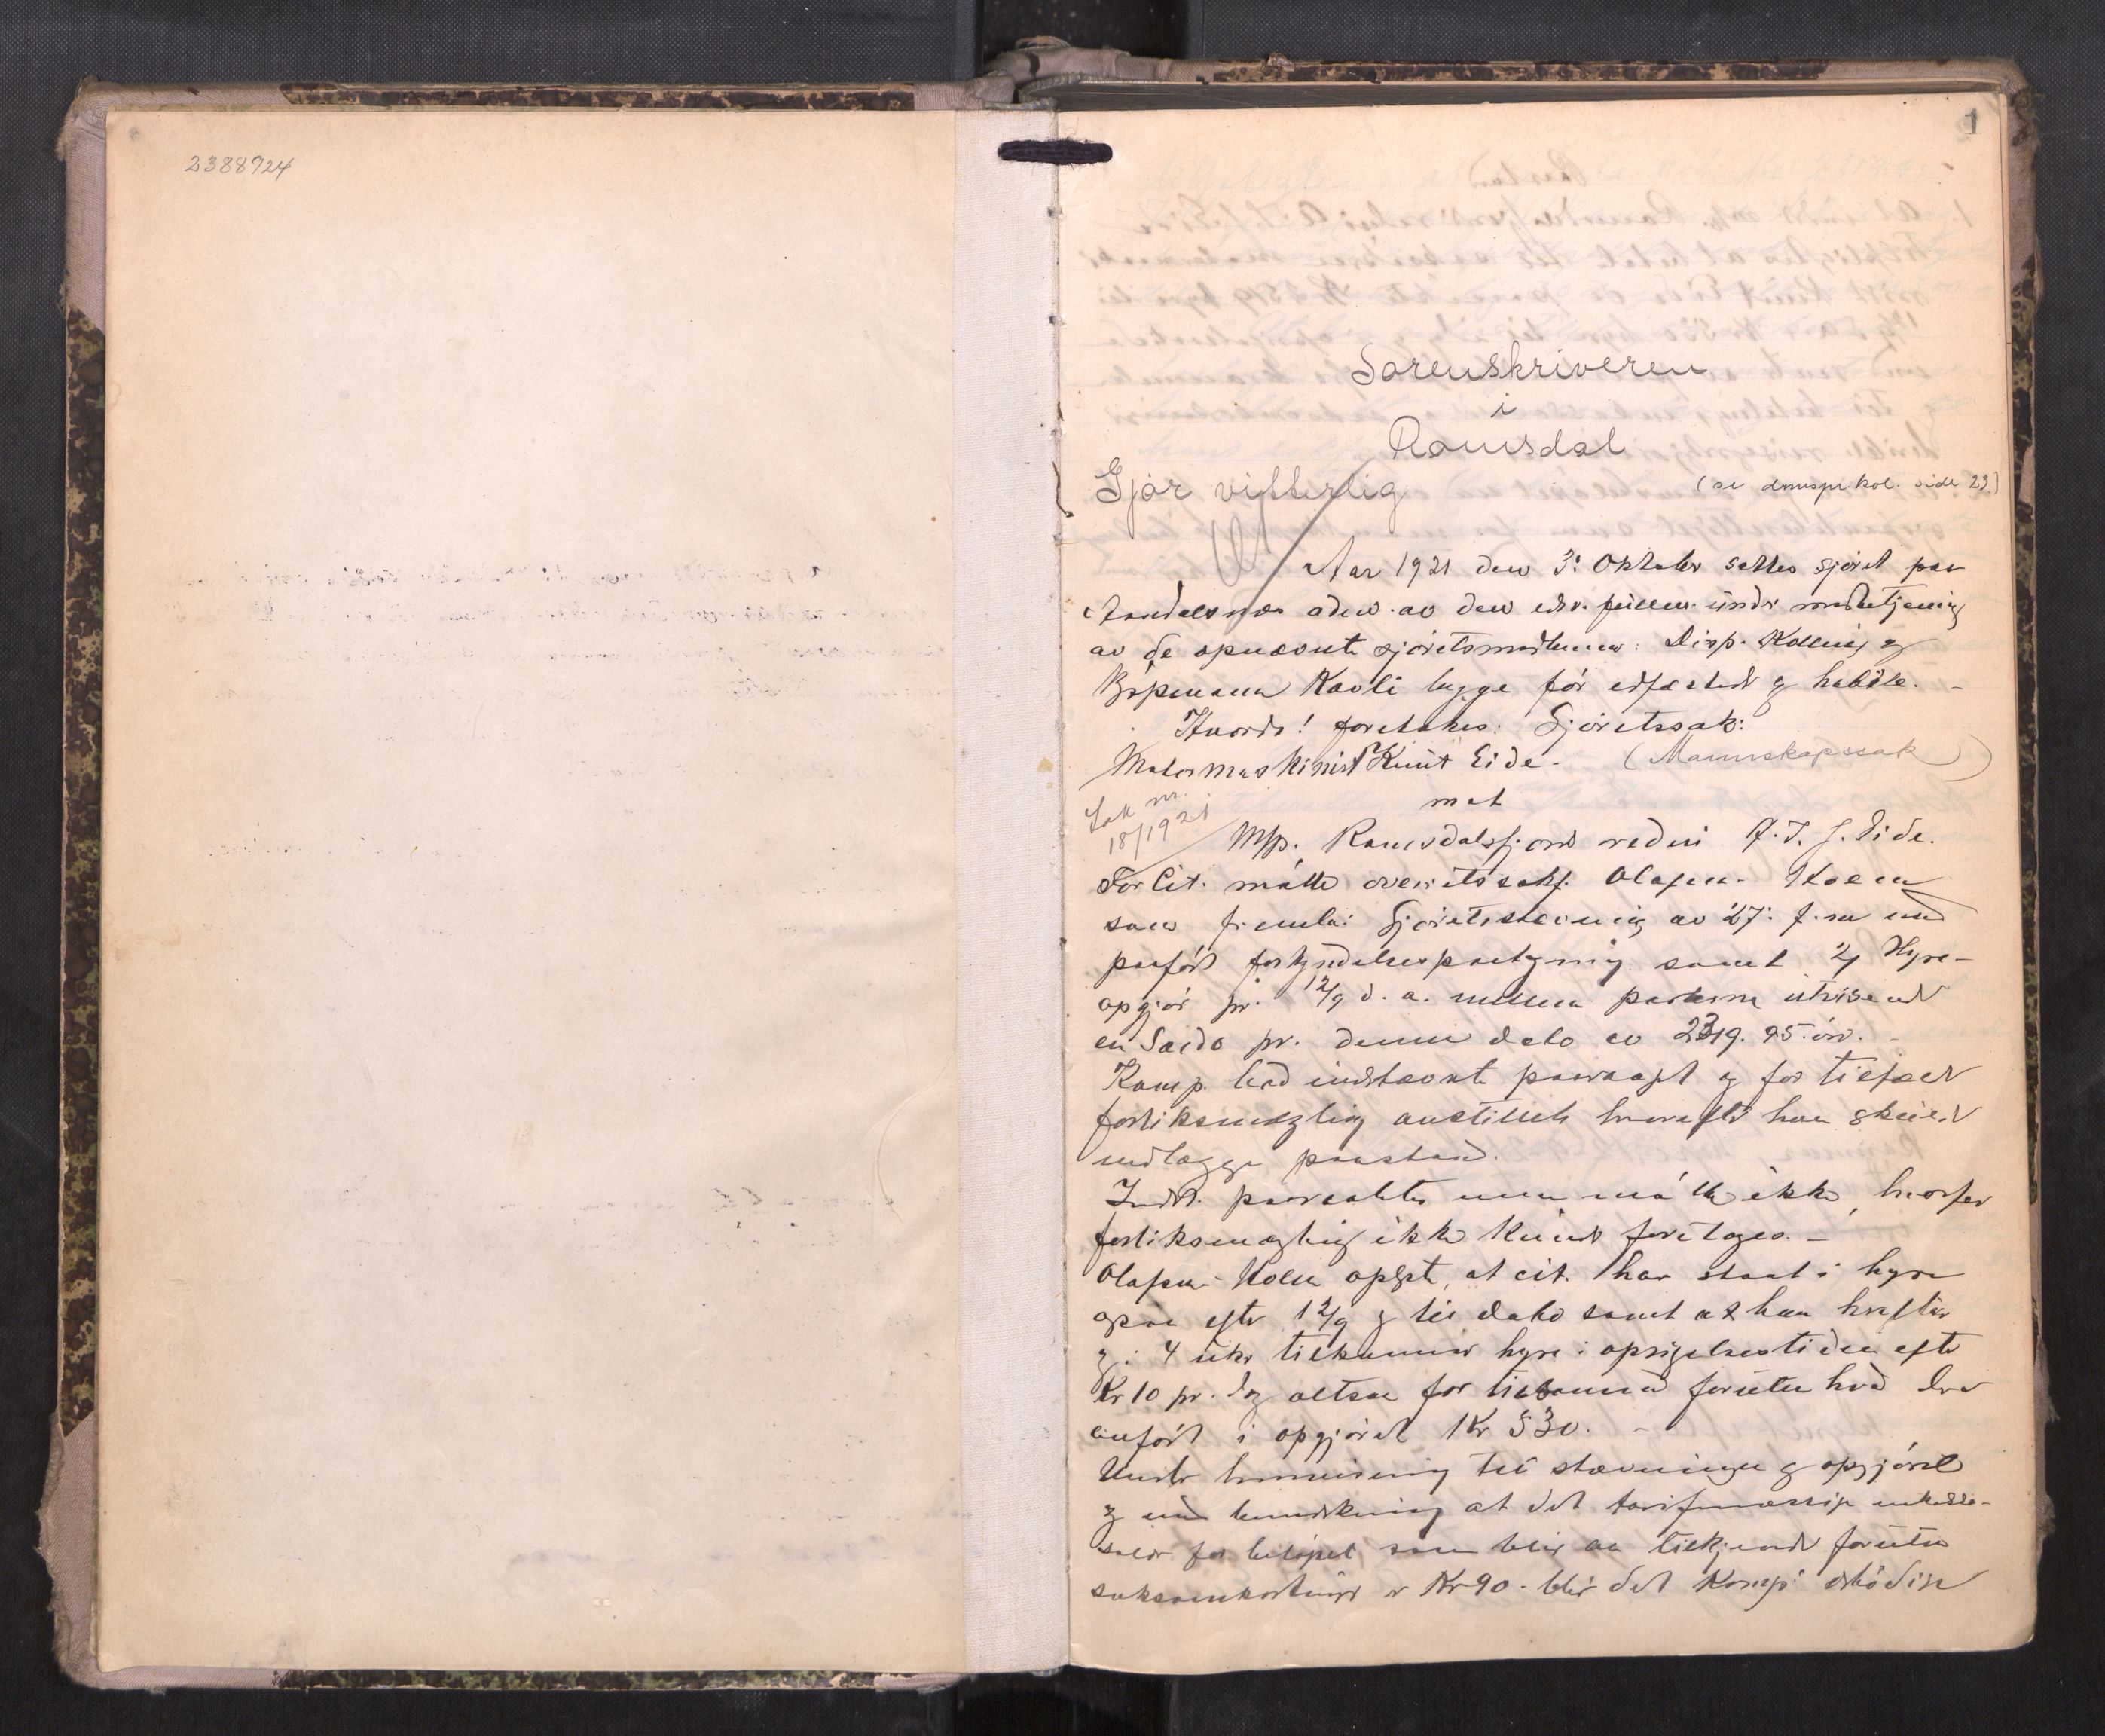 2388724
1
Sorenskriveren
i
Romsdal
Gjør vitterlig
(se domspr.kol. side 29)
At
Aar 1921 den 3: Oktober sattes sjøret paa
Aandalsnæs av den under
av de opnævnte sjøretsmedlemmer: Disp. Kolling og
Kjøpmann Kavli begge før edfæstede og habile. -
Hvorda! foretokes: Sjøretssak:
Motormaskinist Knut Eide. (Mannskapssak)
mot
Sak nr.
18/1921
M/p. Romsdalsfjord rederi J. Eide.
For Cit. møtte overretssakf. Olafsen-Holm
som freml: Sjøretsstevning av 27: f.m. med
paaført forkyndelsespaategning samt 2) Hyre-
opgjør pr. 12/9 d. a. mellem parterne utvisende
en Saldo pr. denne dato av 2319. 95 øre. -
Komp. bad indstævnte paaraapt og for tilfælde
forliksmægling anstillet hvorefter han skulde
nedlægge paastand.
Indst. paaraaptes men møtte ikke, hvorfor
forliksmægling ikke kunde foretages. -
Olafsen-Holm oplyste, at cit. har staat i hyre
ogsaa efter 12/9 og til dato samt at han
og i 4 uker tilkommer hyre i opsigelsestiden efter
Kr 10 pr. dag altsaa for foruten hvad der er
anført i opgjøret Kr 530. -
Under henvisning til stævningen og opgjøret
og med bemerkning at det tarifmæssige inkasso-
salær for beløpet, som blir at tilkjende foruten
saksomkostninger er Kr 90.- blir det Komp: